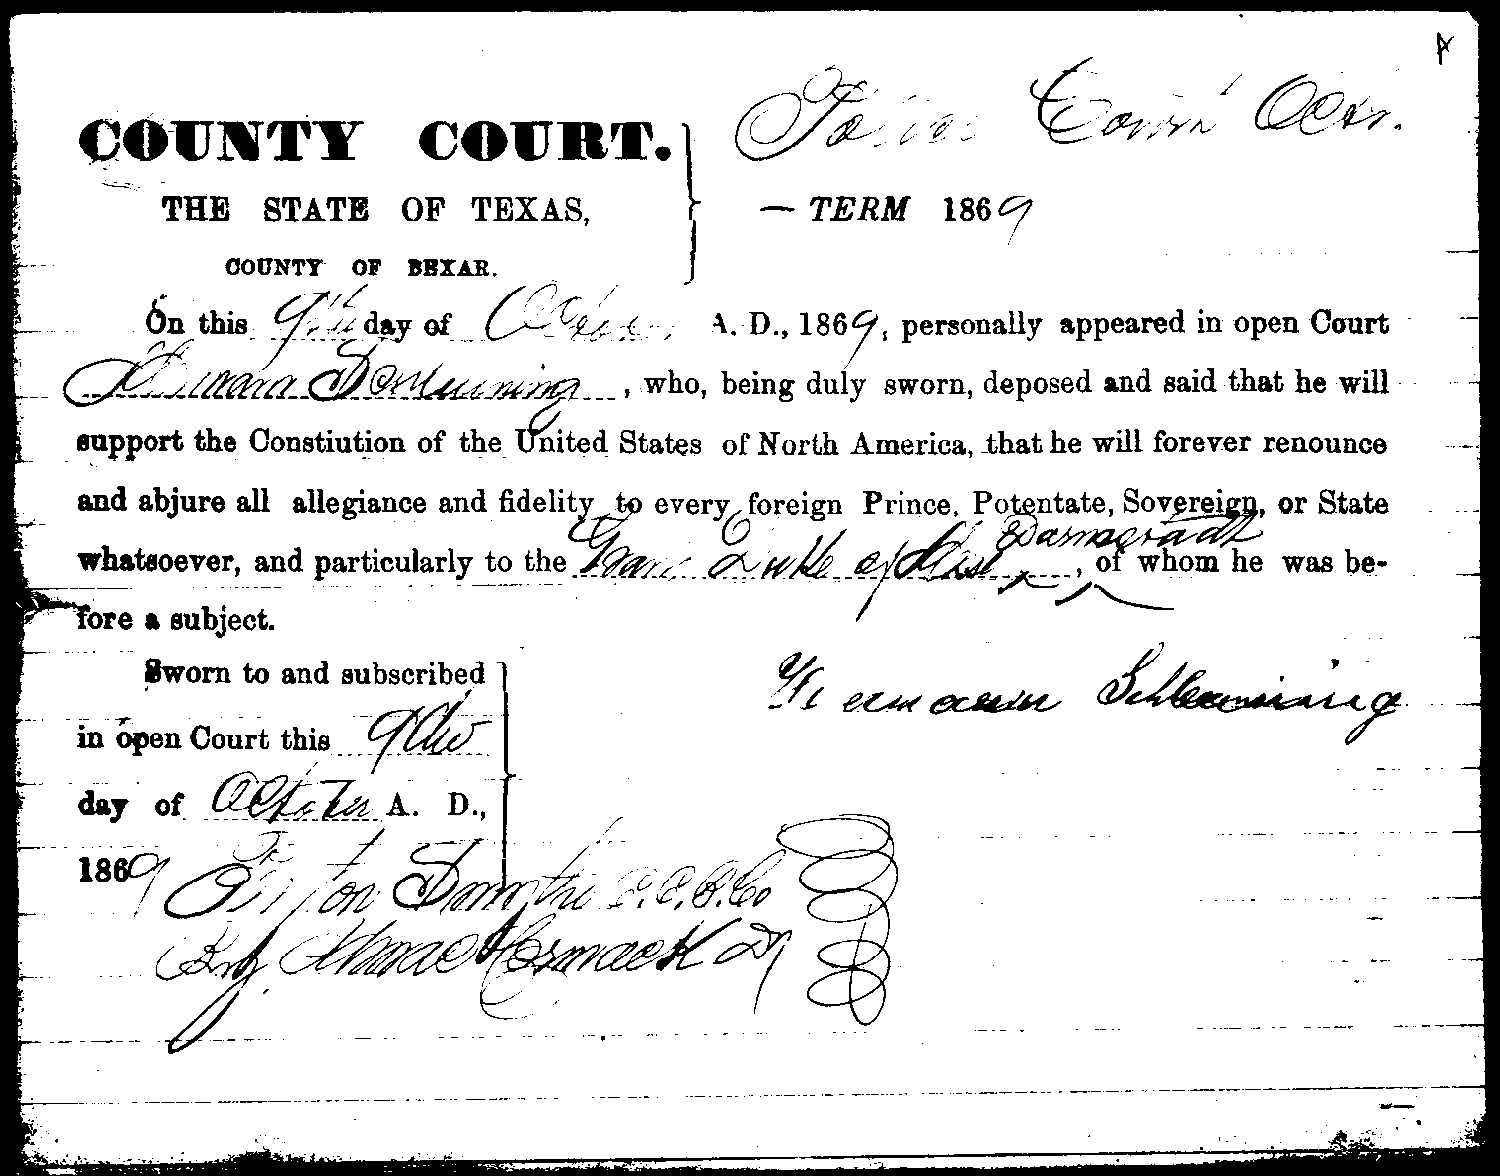 COUNTY COURT.
THE STATE OF TEXAS,
COUNTY OF BEXAR.
Court Octr.
— TERM 1869
On this 9th day of October A. D., 1869, personally appeared in open Court
Hermann Schleuning, who, being duly sworn, deposed and said that he will
support the Constiution of the United States of North America, that he will forever renounce
and abjure all allegiance and fidelity to every foreign Prince, Potentate, Sovereign, or State
whatsoever, and particularly to the Grand Duke of Hesse Darmstadt, of whom he was be-
fore a subject.
Sworn to and subscribed
in open Court this 9th
day of October A. D.,
1869
Hermann Schleuning
Smythe C.C.B.Co
By Cormack Dy